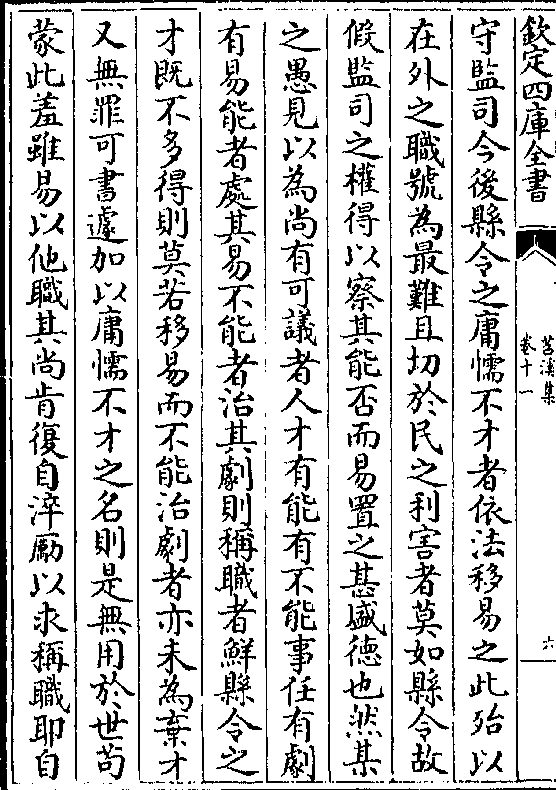 欽定四庫全書
苕溪集
卷十一
六
守監司今後縣令之庸懦不才者依法移易之此殆以
在外之職號為最難且切於民之利害者莫如縣令故
假監司之權得以察其能否而易置之甚盛德也然某
之愚見以為尚有可議者人才有能有不能事任有劇
有易能者處其易不能者治其劇則稱職者鮮縣令之
才既不多得則莫若移易而不能治劇者亦未為棄才
又無罪可書遽加以庸懦不才之名則是無用於世苟
蒙此羞雖易以他職其尚肯復自淬勵以求稱職耶自